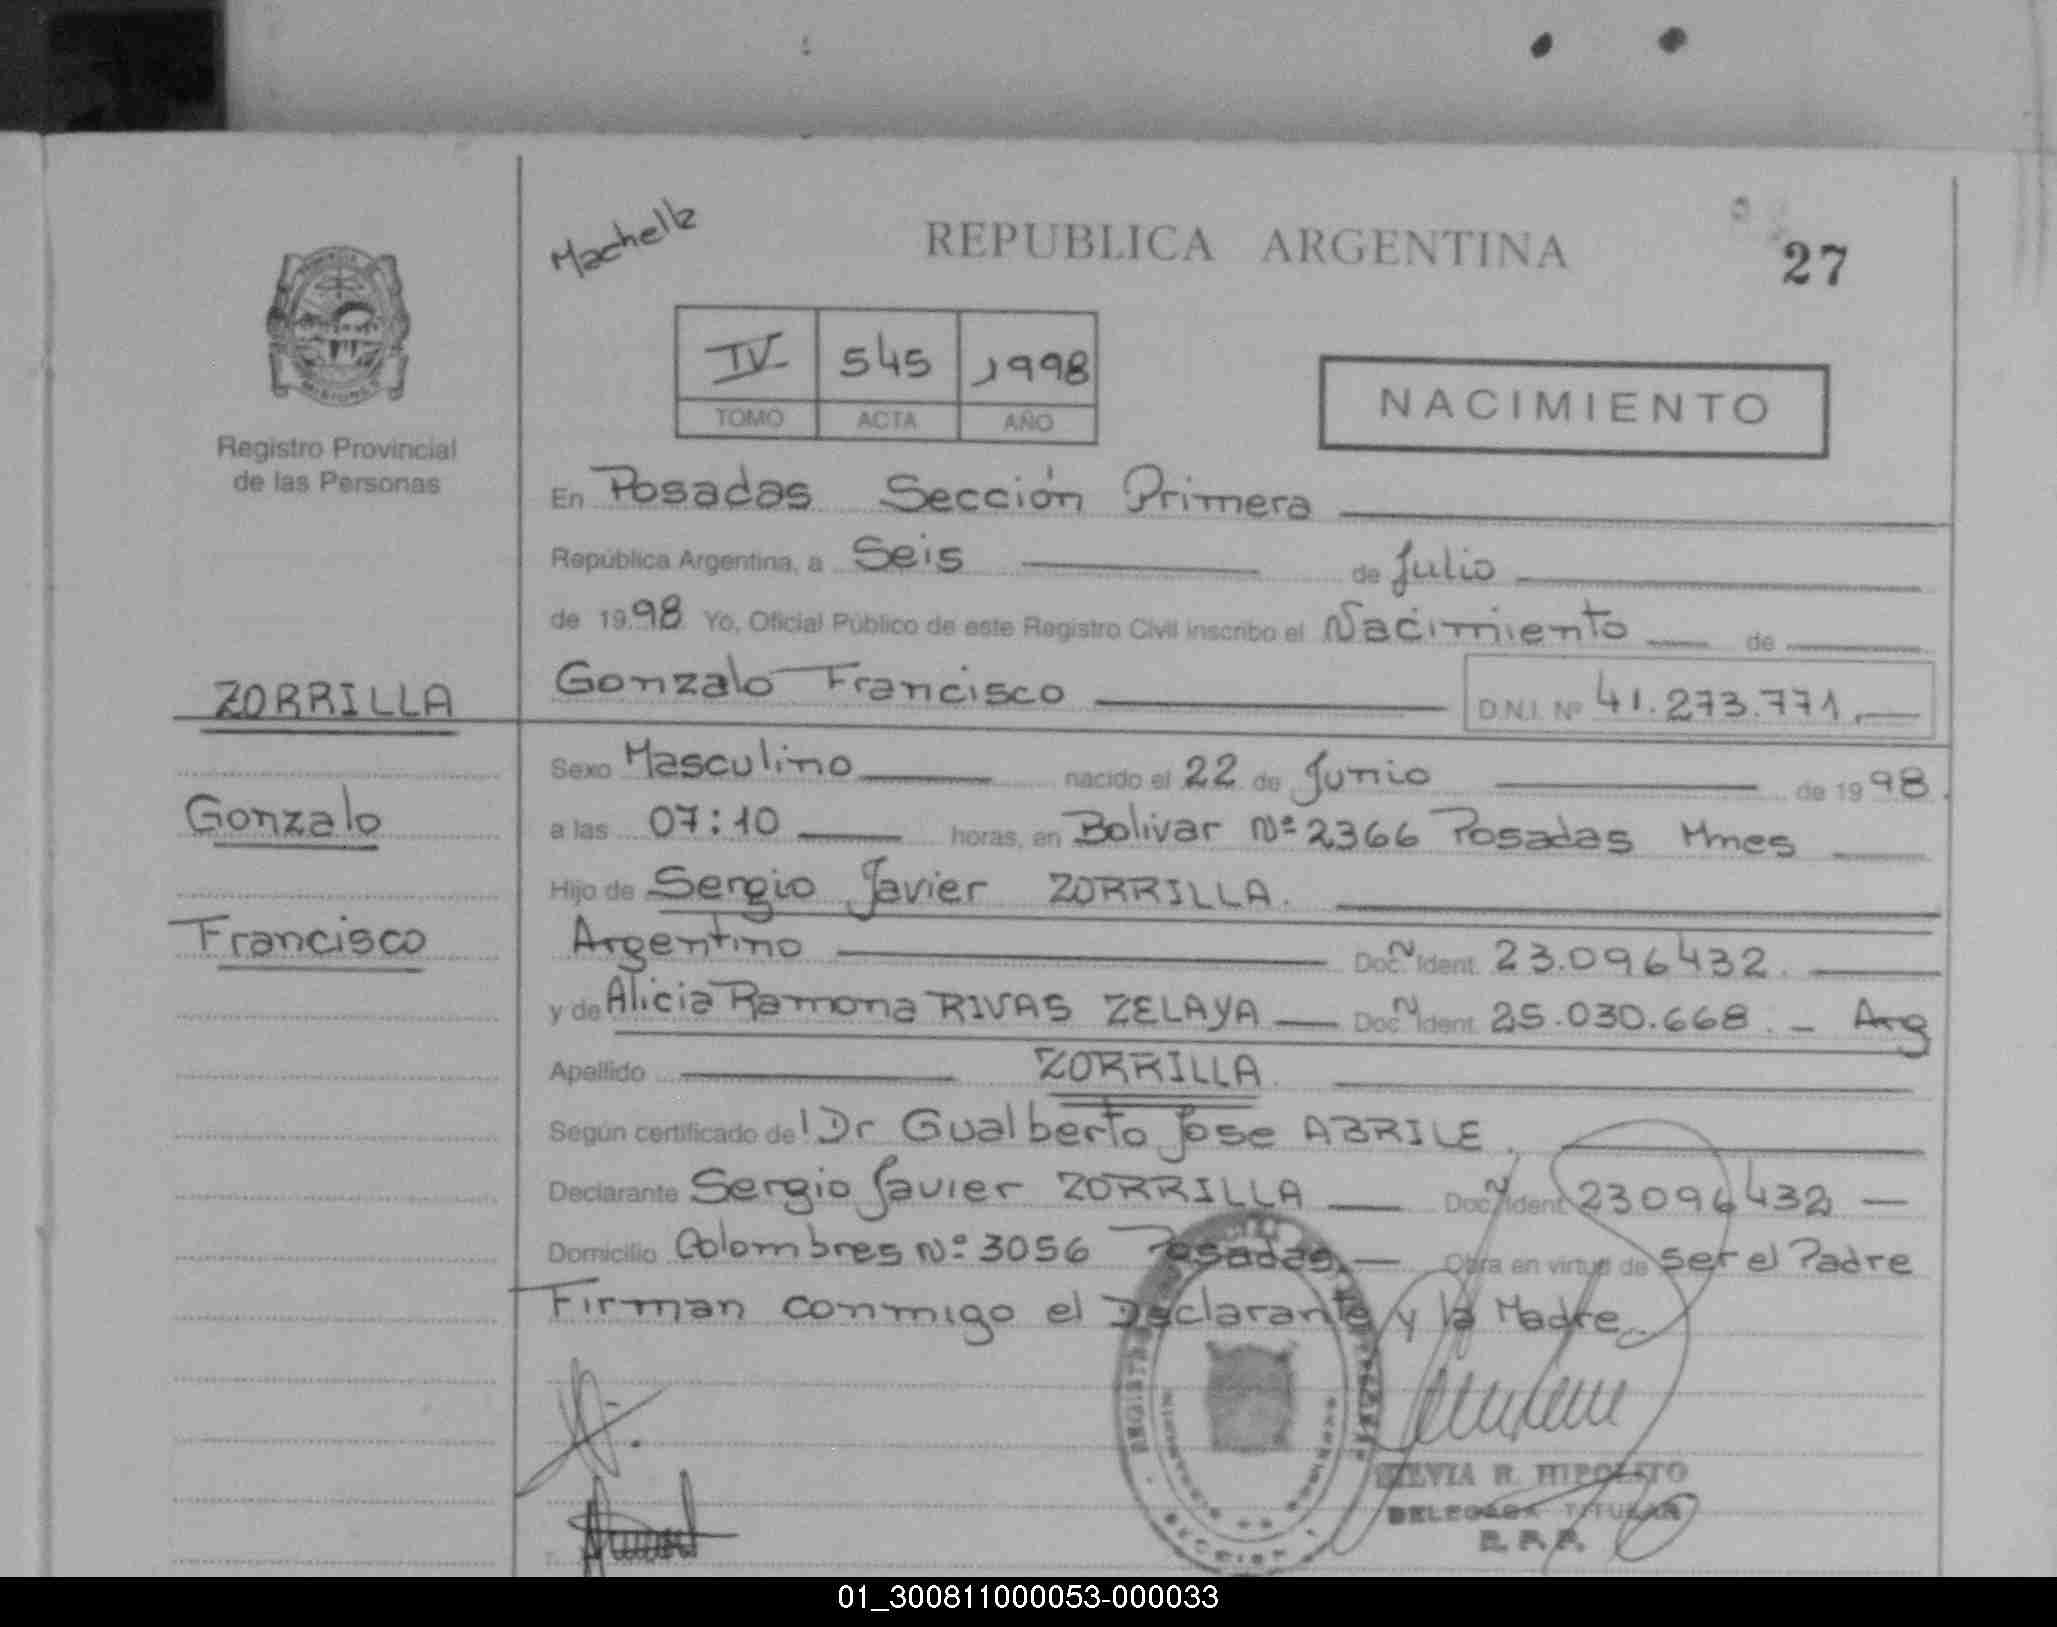 REPUBLICA ARGENTINA
27
IV 545 1998
TOMO ACTA AÑO
NACIMIENTO
MISIONES
Registro Provincial
de las Personas
En Posadas Sección Primera
República Argentina, a Seis de Julio
de 1998 Yo, Oficial Público de este Registro Civil inscribo el Nacimiento de
ZORRILLA
Gonzalo
Francisco
Gonzalo Francisco D.N.I. Nº 41.273.771.
Sexo Masculino nacido el 22 de Junio de 1998.
a las 07:10 horas, en Bolivar Nº 2366 Posadas Mnes
Hijo de Sergio Javier ZORRILLA.
Argentino Doc. N Ident. 23.096432.
y de Alicia Ramona RIVAS ZELAYA Doc. N Ident. 25.030.668. - Arg
Apellido ZORRILLA.
Según certificado del Dr Gualberto Jose ABRILE.
Declarante Sergio Javier ZORRILLA Doc. N Ident. 23096432
Domicilio Colombres Nº 3056 Posadas. Obra en virtud de ser el Padre
Firman conmigo el Declarante y la Madre.
SILVIA R. HIPOLITO
DELEGADA TITULAR
R.P.P.
01_300811000053-000033